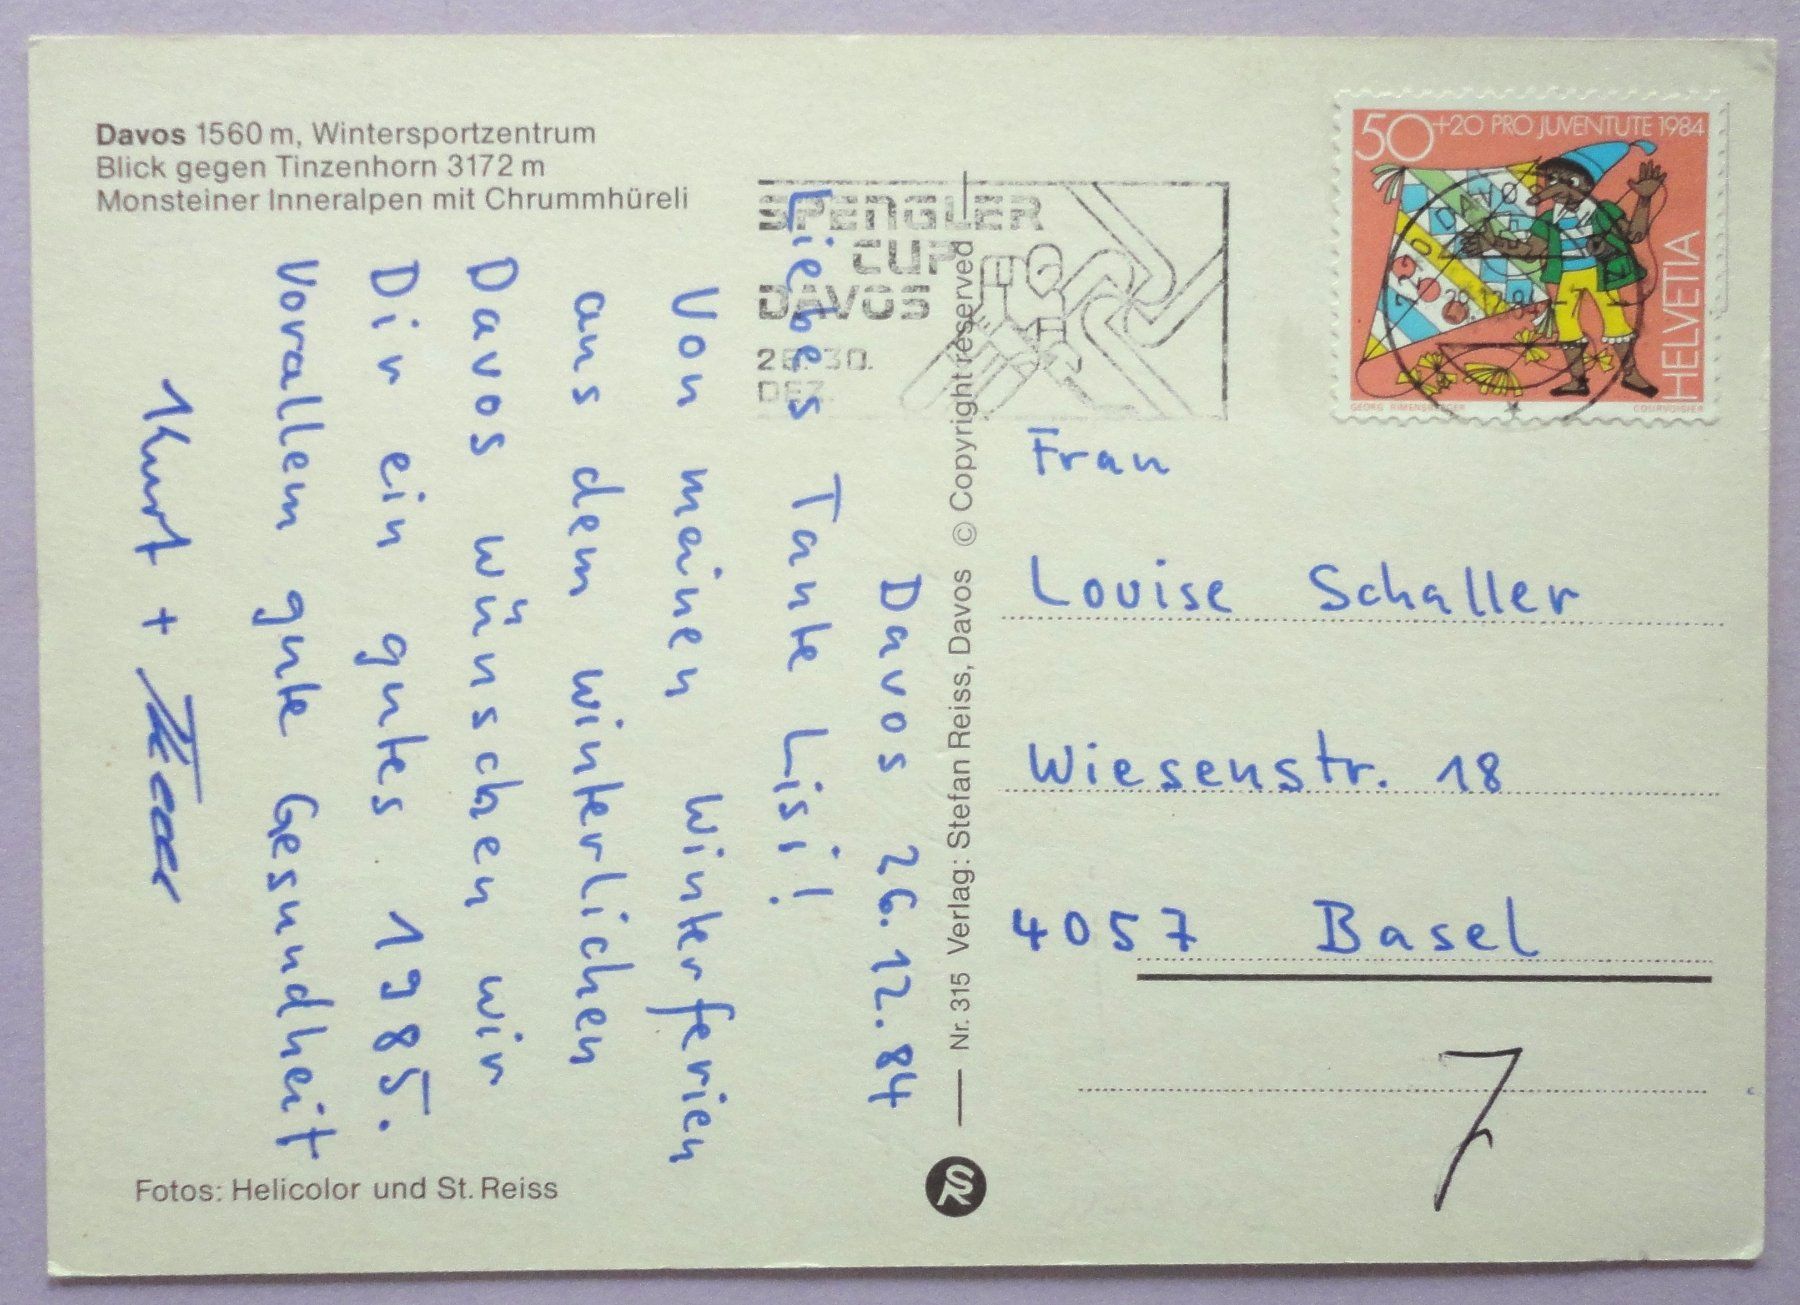 Davos 1560 m, Wintersportzentrum
Blick gegen Tinzenhorn 3172 m
Monsteiner Inneralpen mit Chrummhüreli
SPENGLER
CUP
DAVOS
26.-30.
DEZ.
50+20 PRO JUVENTUTE 1984
HELVETIA
GEORG RIMENSBERGER
COURVOISIER
Davos 26.12.84
Liebes Tante Lisi!
Von meinen Winterferien
aus dem winterlichen
Davos wünschen wir
Dir ein gutes 1985.
Vorallem gute Gesundheit
Kurt +
Nr. 315 Verlag: Stefan Reiss, Davos © Copyright reserved
Frau
Louise Schaller
Wiesenstr. 18
4057 Basel
7
Fotos: Helicolor und St. Reiss